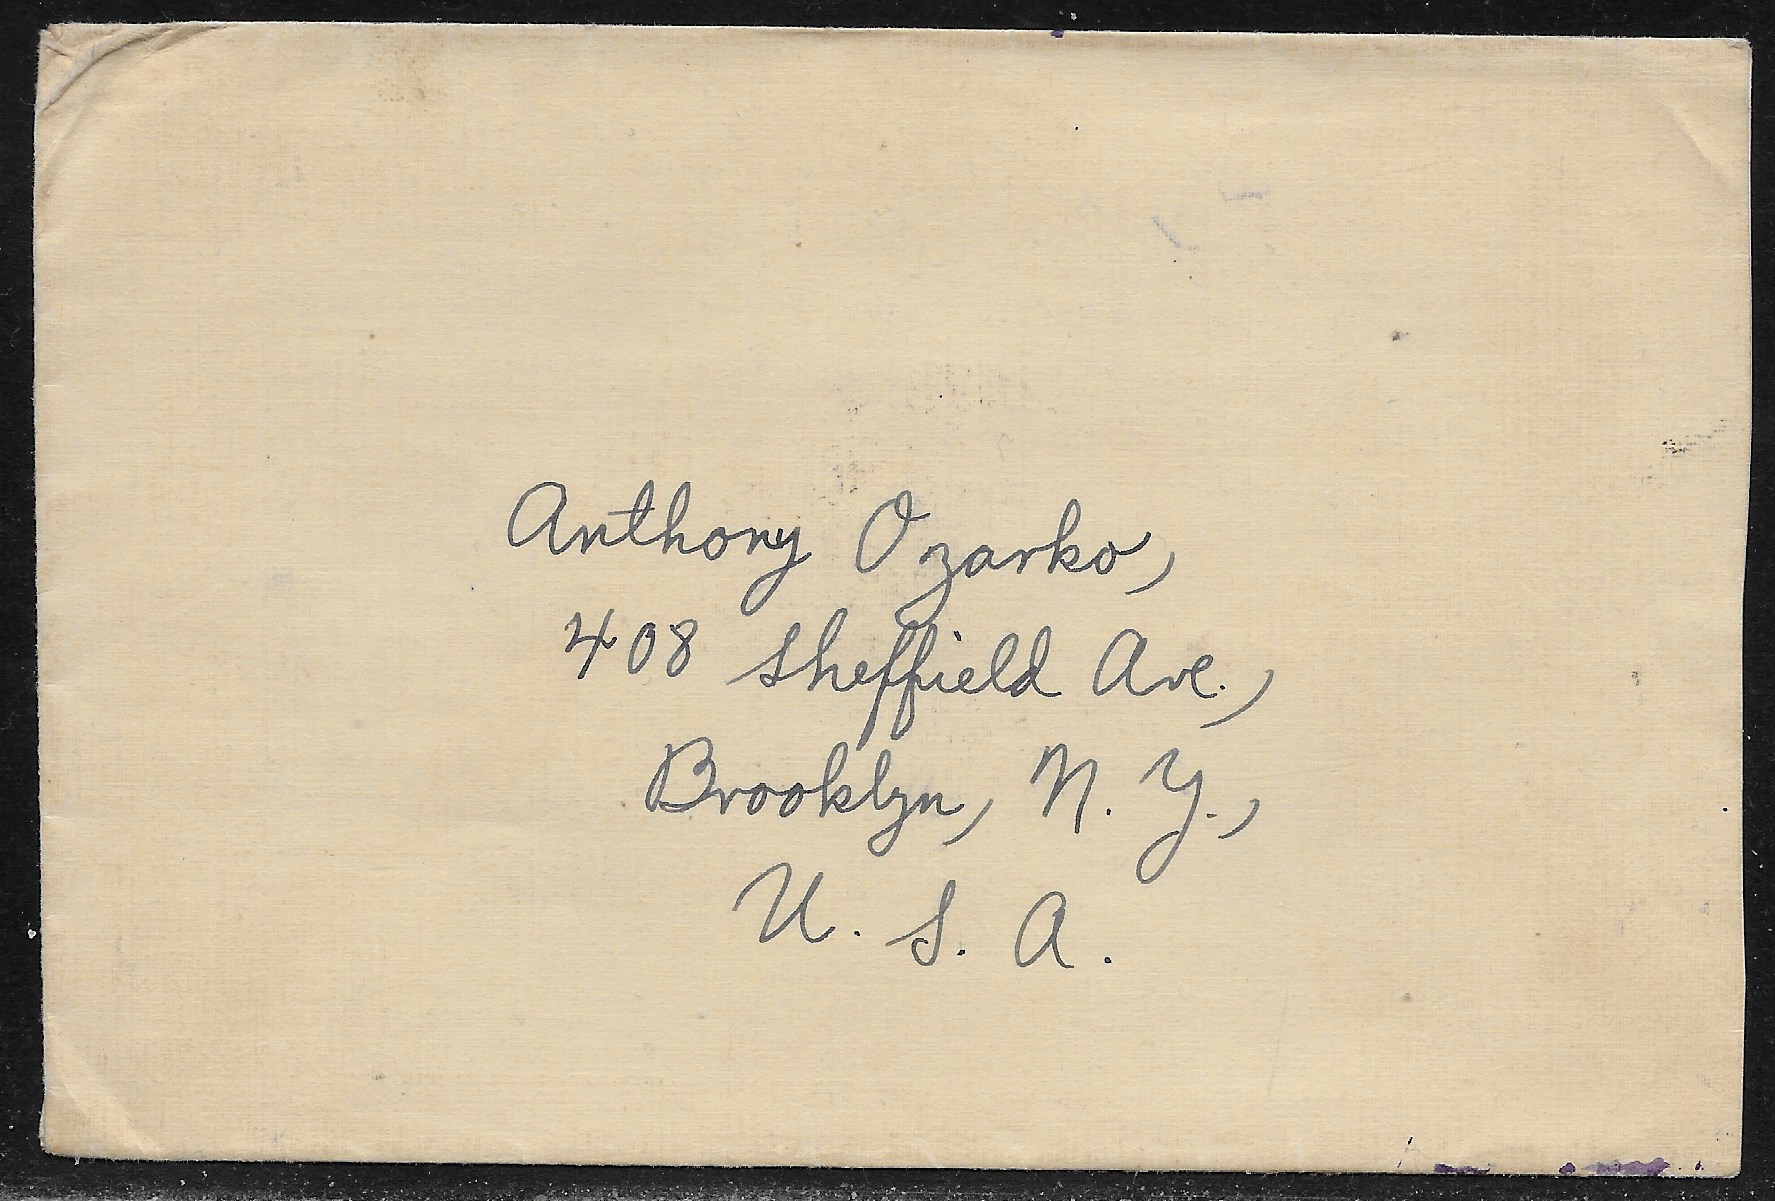 Anthony Ozarko,
408 Sheffield Ave.,
Brooklyn, N. Y.,
U. S. A.